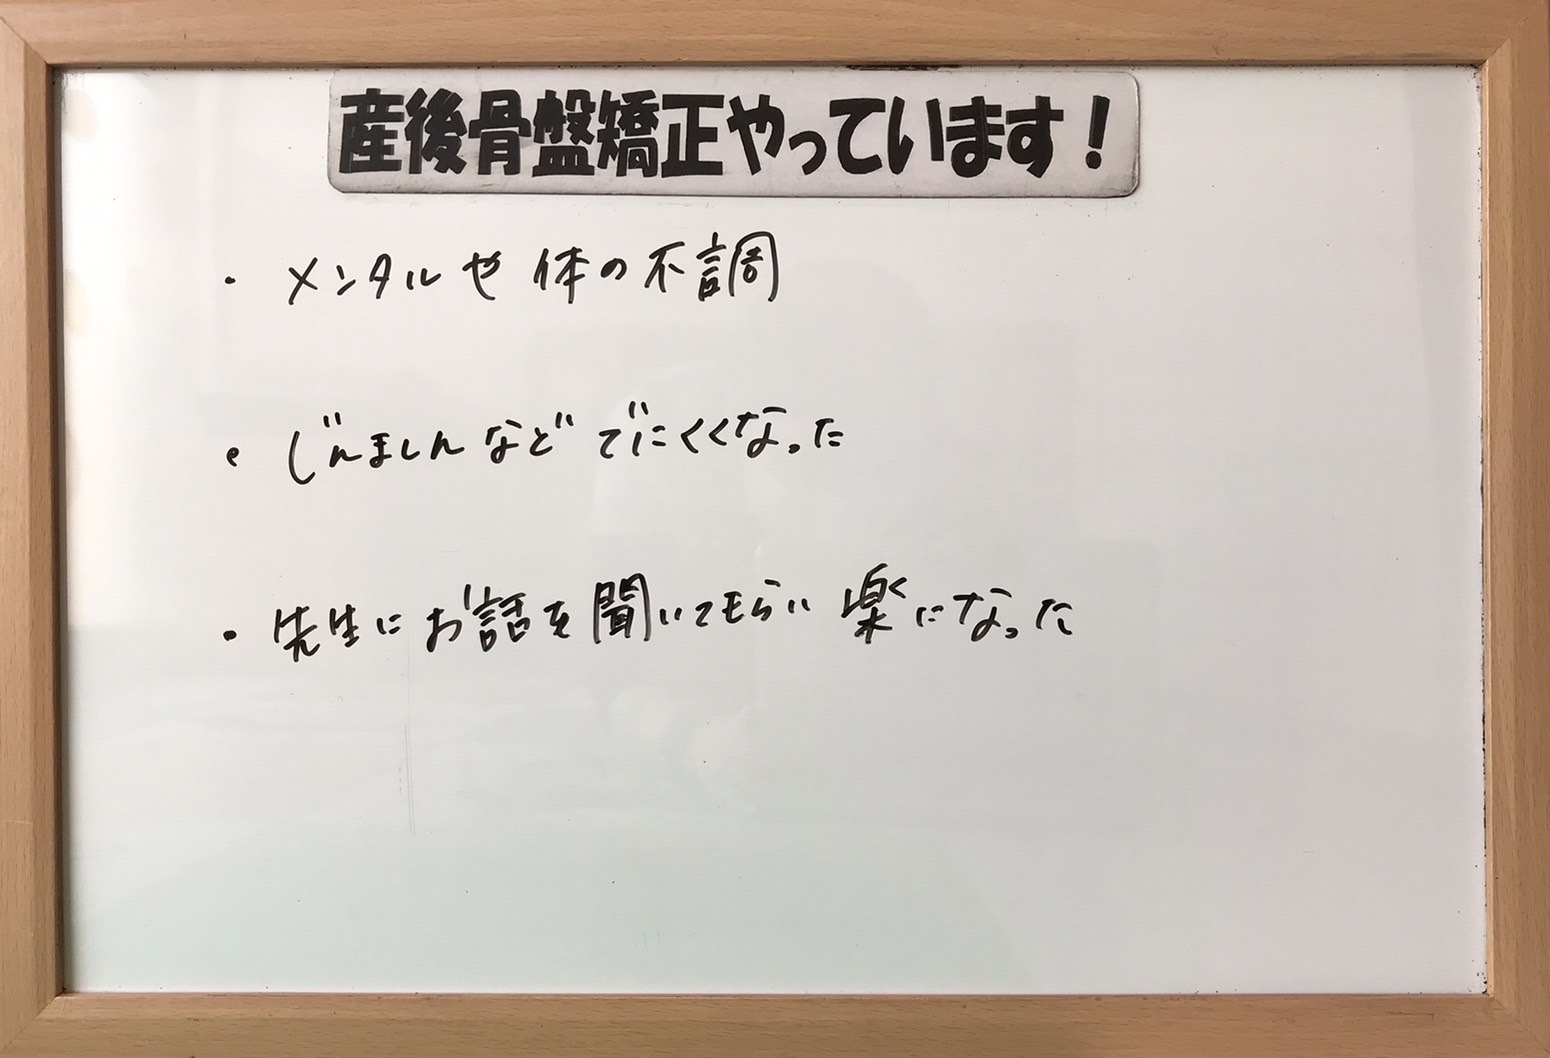 産後骨盤矯正やっています！
・メンタルや体の不調
・じんましんなどでにくくなった
・先生にお話を聞いてもらい楽になった